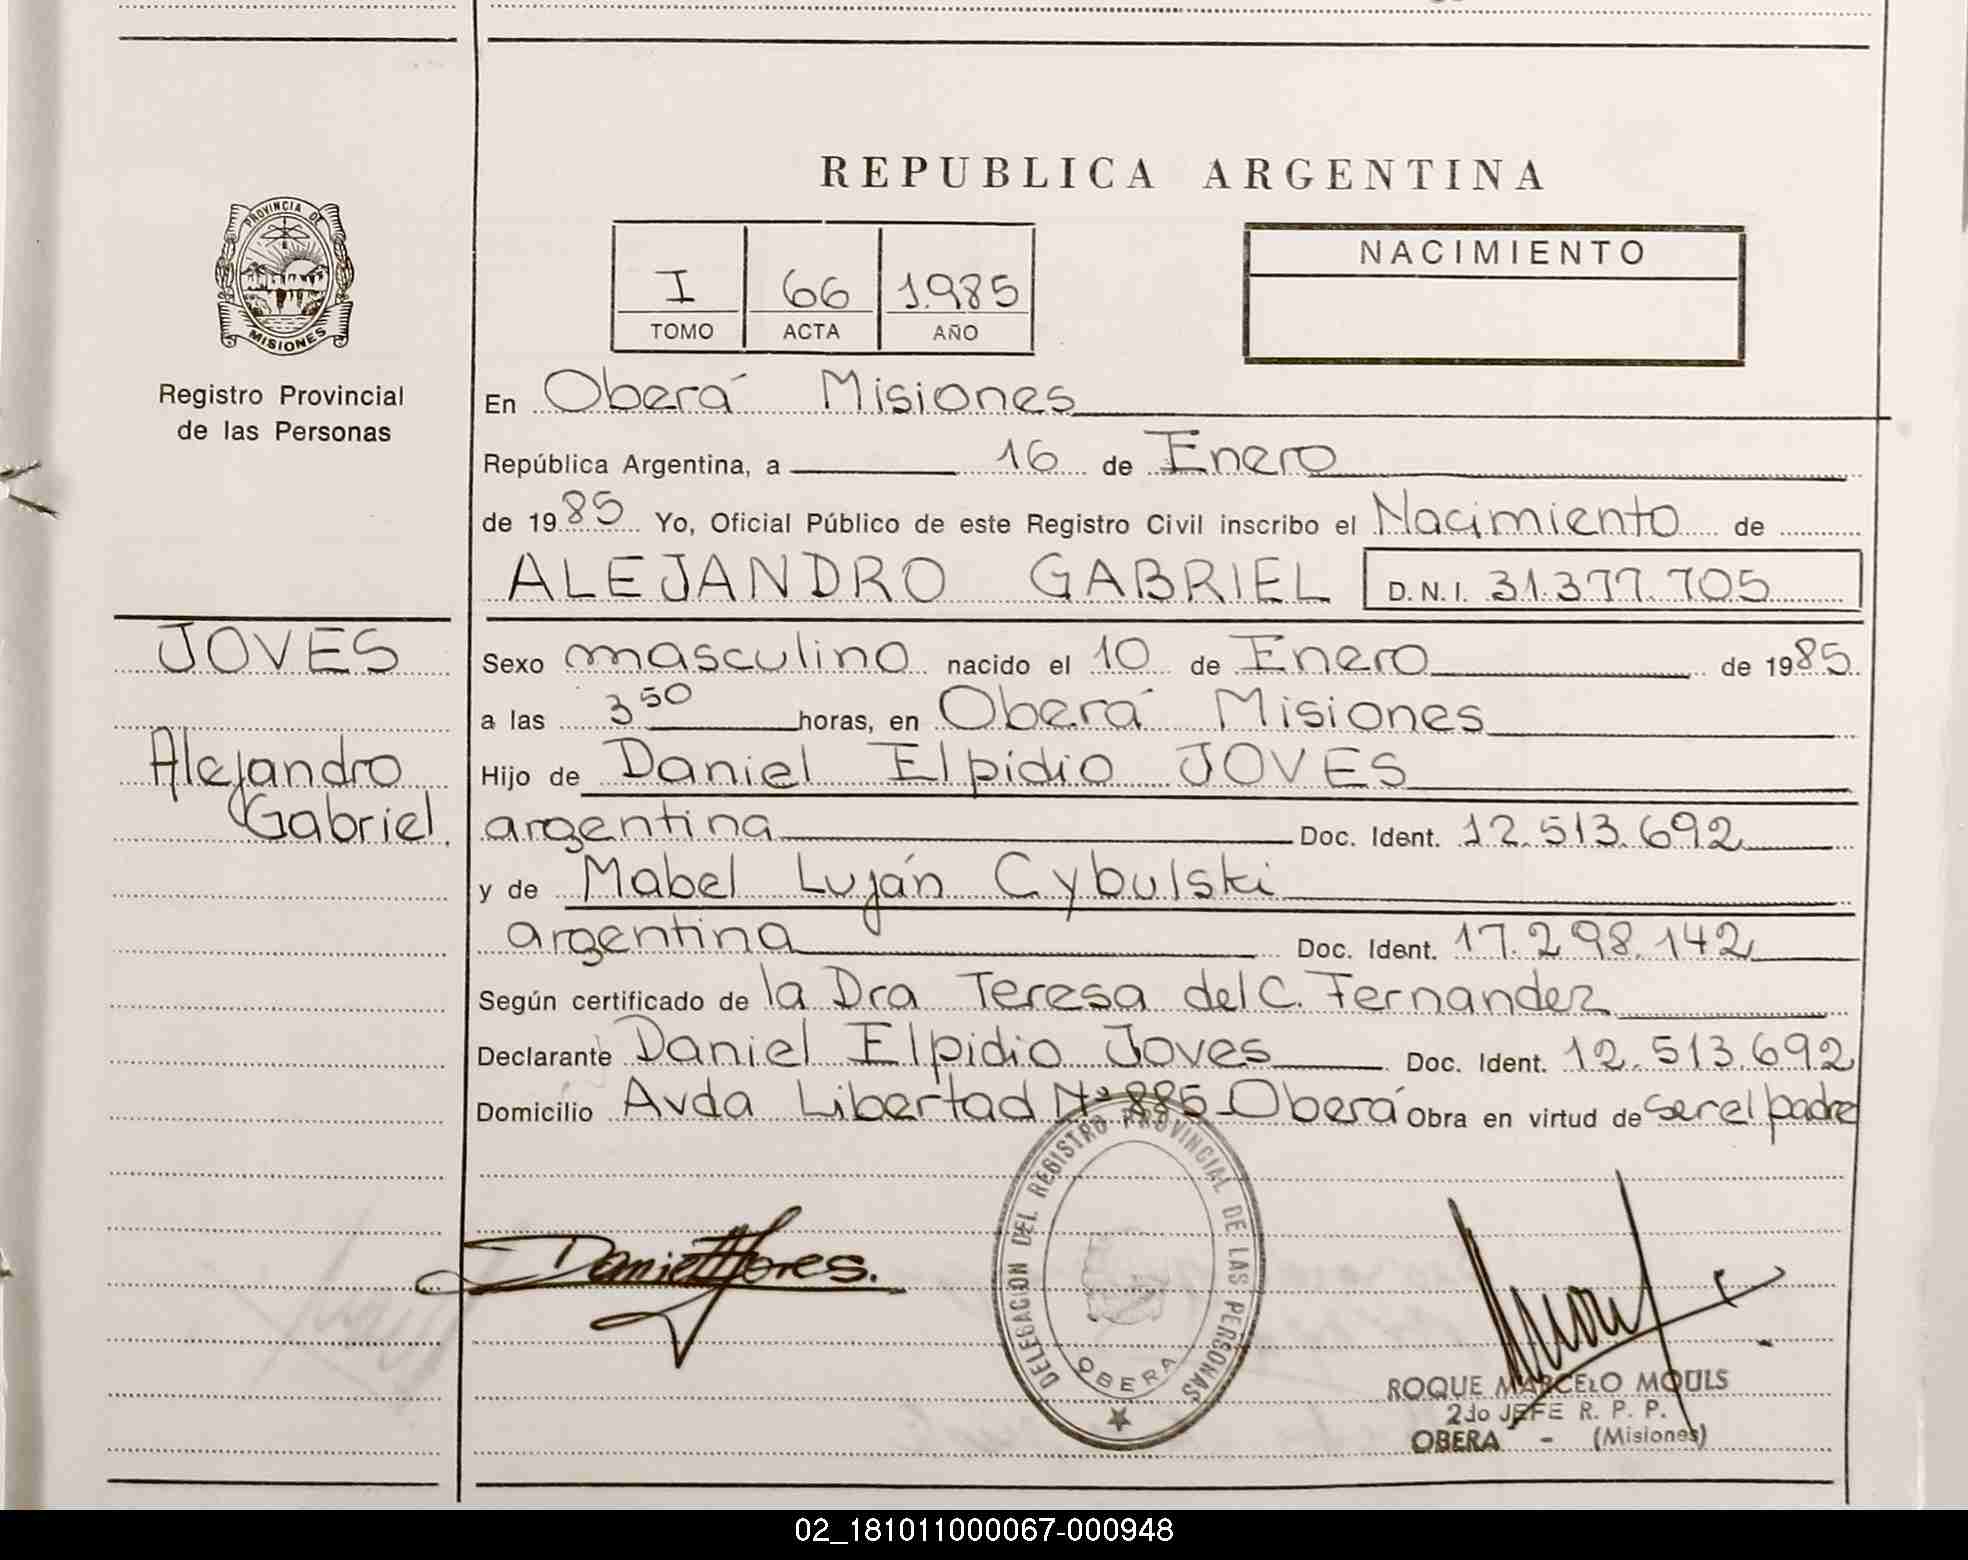 REPUBLICA ARGENTINA
PROVINCIA DE
MISIONES
Registro Provincial
de las Personas
I 66 1.985
TOMO ACTA AÑO
NACIMIENTO
En Oberá Misiones
República Argentina, a 16 de Enero
de 1985 Yo, Oficial Público de este Registro Civil inscribo el Nacimiento de
ALEJANDRO GABRIEL D.N.I. 31.377.705
JOVES
Alejandro
Gabriel.
Sexo masculino nacido el 10 de Enero de 1985.
a las 3 50 horas, en Oberá Misiones
Hijo de Daniel Elpidio JOVES
argentina Doc. Ident. 12.513.692
y de Mabel Luján Cybulski
argentina Doc. Ident. 17.298.142
Según certificado de la Dra Teresa del C. Fernandez
Declarante Daniel Elpidio Joves Doc. Ident. 12.513.692
Domicilio Avda Libertad Nº 885 - Oberá Obra en virtud de ser el padre
DELEGACION DEL REGISTRO PROVINCIAL DE LAS PERSONAS
OBERA
ROQUE MARCELO MOULS
2do JEFE R. P. P.
OBERA - (Misiones)
02_181011000067-000948